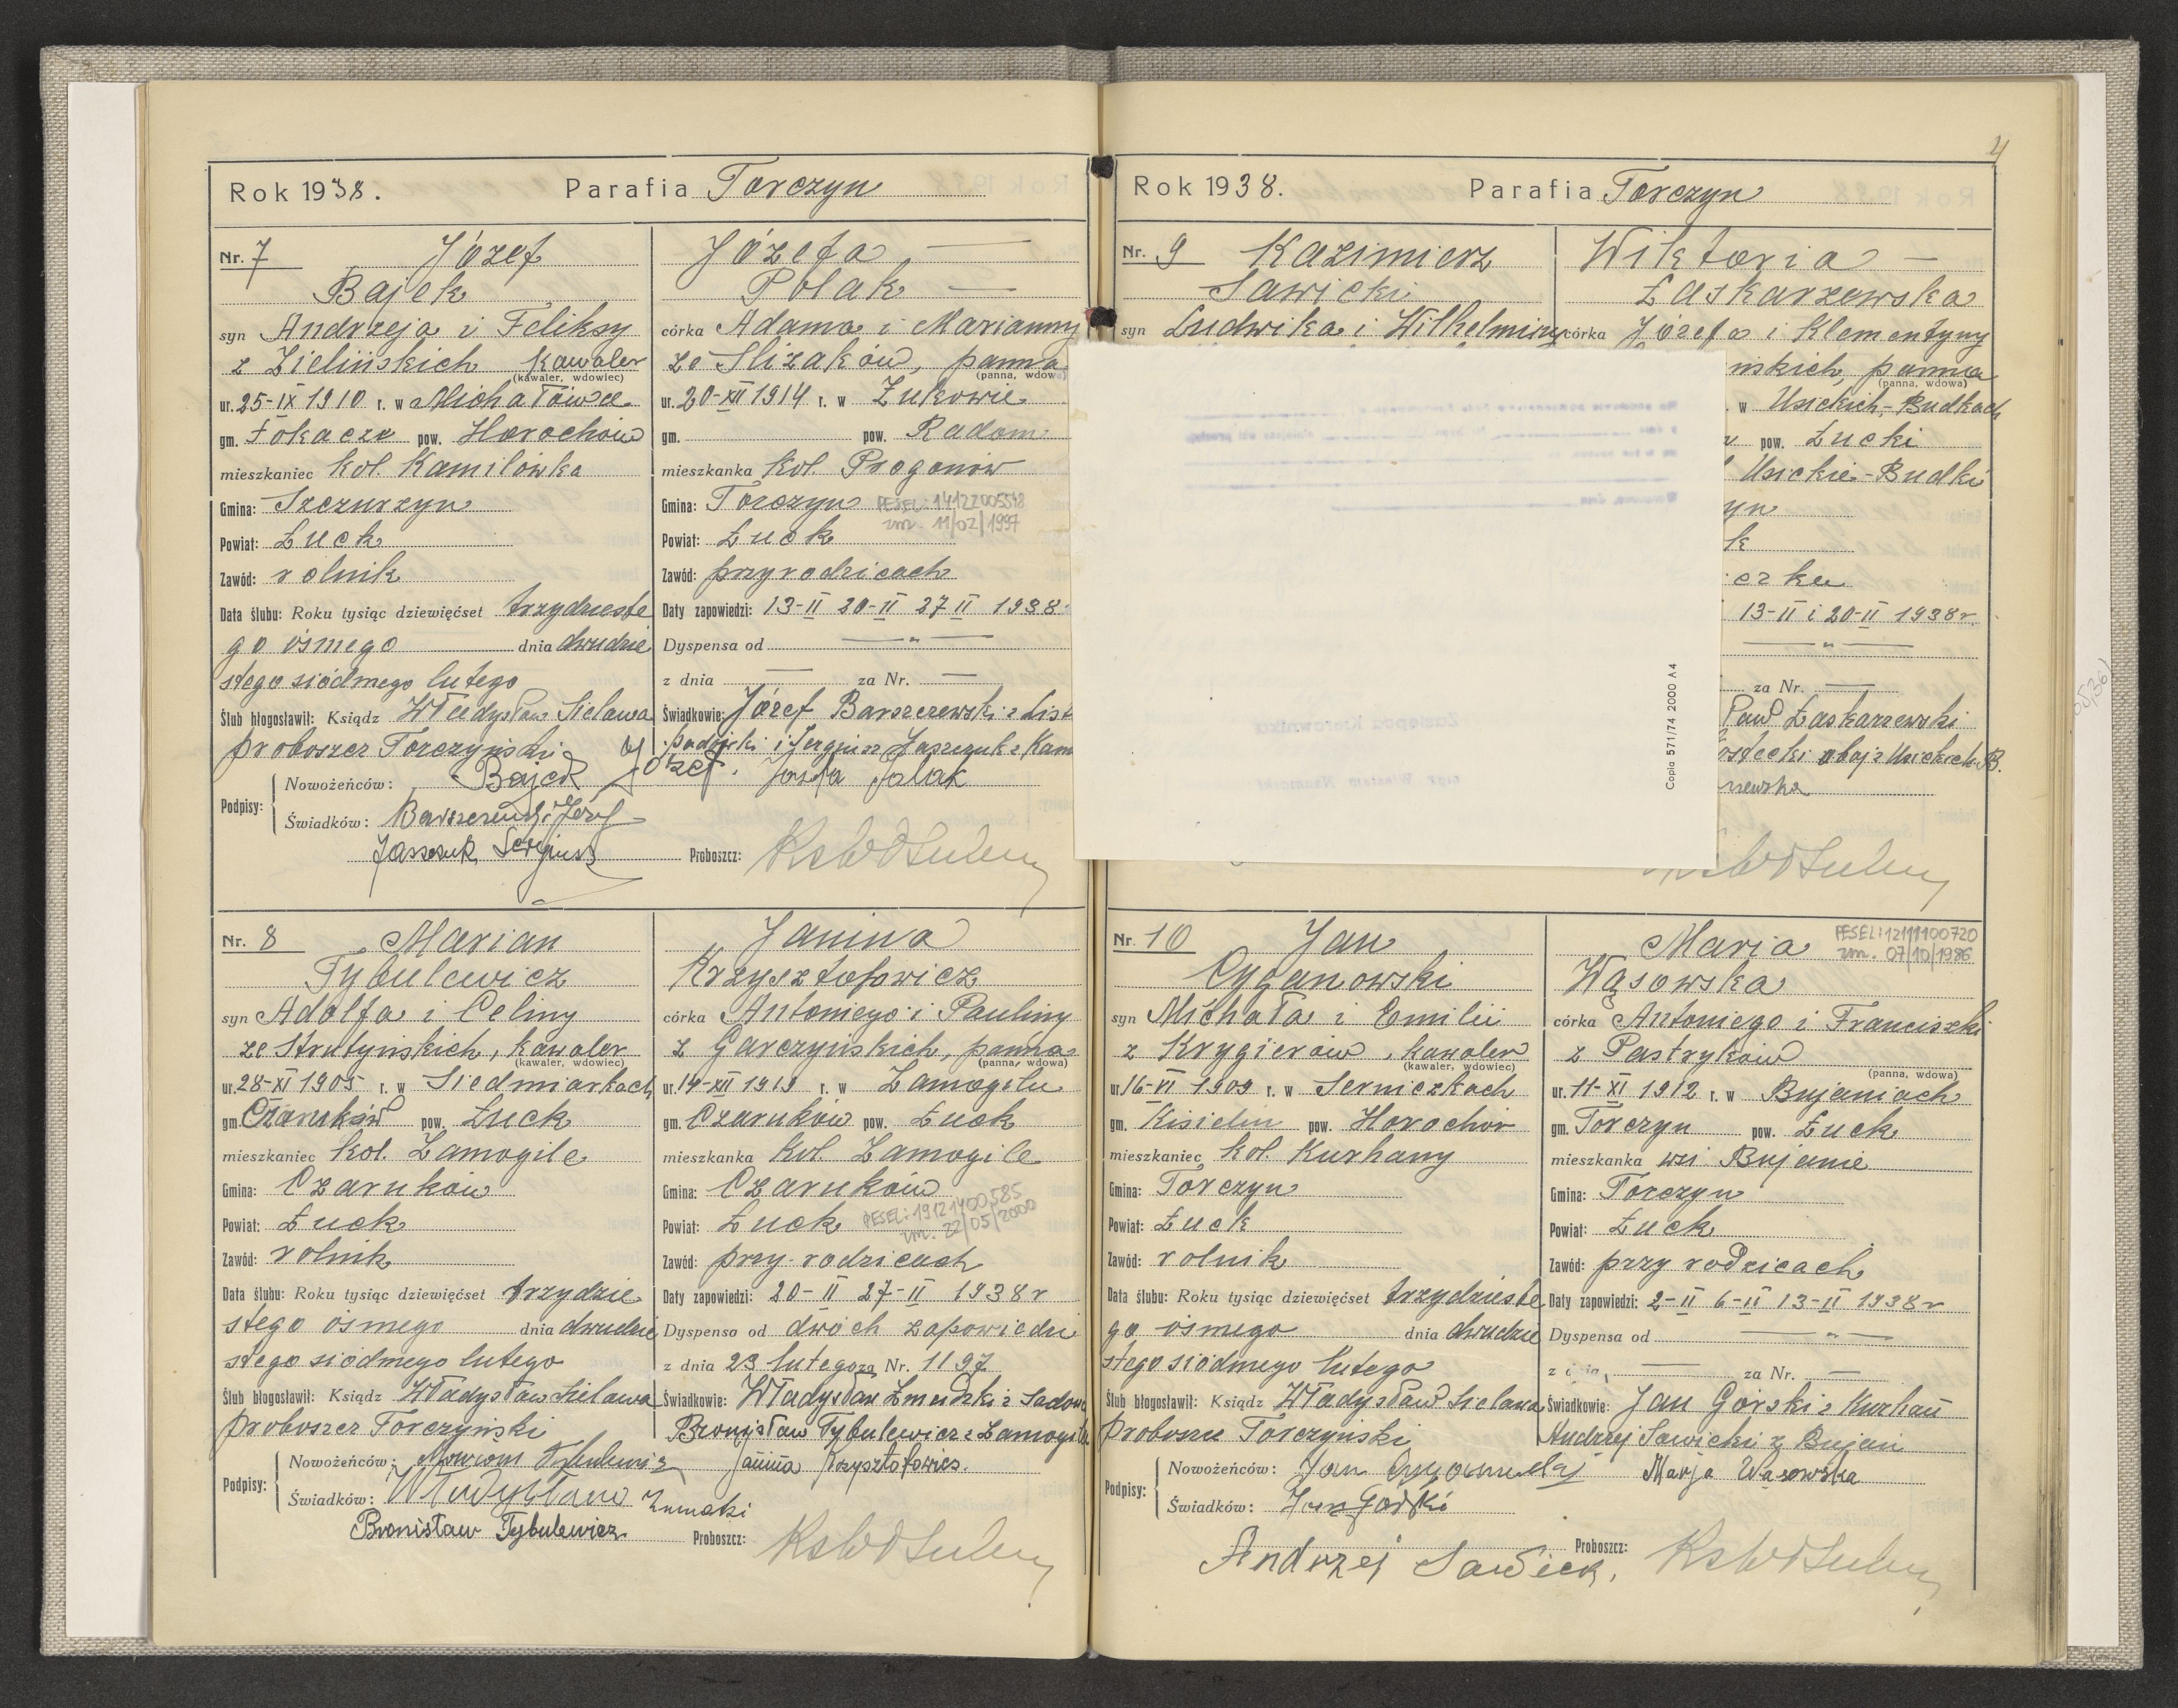 Rok 1938. Parafia Torczyn
Nr. 7 Józef
Bajek
syn Andrzeja i Feliksy
z Zielińskich kawaler
(kawaler, wdowiec)
ur. 25-IX 1910 r. w Michałówce
gm. Łokacze pow. Horochów
mieszkaniec kol. Kamilówka
Gmina: Szczurzyn
Powiat: Łuck
Zawód: rolnik
Data ślubu: Roku tysiąc dziewięćset trzydzieste
go ósmego dnia dwudzie
stego siódmego lutego
Ślub błogosławił: Ksiądz Władysław Sielawa
proboszcz Torczyński
Józefa
Polak
córka Adama i Marianny
ze Slizaków, panna
(panna, wdowa)
ur. 20-XII 1914 r. w Żukowie
gm. pow. Radom
mieszkanka kol. Progonów
Gmina: Torczyn PESEL: 14122005548
zm. 11/02/1997
Powiat: Łuck
Zawód: przy rodzicach
Daty zapowiedzi: 13-II 20-II 27 II 1938
Dyspensa od
z dnia za Nr.
Świadkowie: Józef Barszczewski z List
i Sergiusz Jaszczuk z Kam
Podpisy: Nowożeńców: Bajek Józef. Józefa Polak
Świadków: Barszczewski Józef
Jaszczuk Sergiusz Proboszcz:
Nr. 8 Marian
Tybulewicz
syn Adolfa i Celiny
ze Strutyńskich, kawaler
(kawaler, wdowiec)
ur. 28-XI 1905 r. w Siedmiarkach
gm. Czaruków pow. Łuck
mieszkaniec kol. Zamogile
Gmina: Czaruków
Powiat: Łuck
Zawód: rolnik
Data ślubu: Roku tysiąc dziewięćset trzydzie
stego ósmego dnia dwudzie
stego siódmego lutego
Ślub błogosławił: Ksiądz Władysław Sielawa
proboszcz Torczyński
Janina
Krzysztofowicz
córka Antoniego i Pauliny
z Garczyńskich, panna
(panna, wdowa)
ur. 14-XII 1919 r. w Zamogilu
gm. Czaruków pow. Łuck
mieszkanka kol. Zamogile
Gmina: Czaruków
Powiat: Łuck PESEL: 19121400585
zm. 22/05/2000
Zawód: przy rodzicach
Daty zapowiedzi: 20-II 27-II 1938 r
Dyspensa od dwóch zapowiedzi
z dnia 23 lutego za Nr. 1197
Świadkowie: Władysław Żmudzki z
Bronisław Tybulewicz z Zamogila
Podpisy: Nowożeńców: Marian Tybulewicz Janina Krzysztofowicz.
Świadków: Władysław Żmudzki
Bronisław Tybulewicz Proboszcz:
4
Rok 1938. Parafia Torczyn
Nr. 9 Kazimierz
Sawicki
syn Ludwika i Wilhelminy
Wiktoria
Łaskarzewska
córka Józefa i Klementyny
ńskich, panna
(panna, wdowa)
w Usickich-Budkach
pow. Łucki
Usickie-Budki
yn
k
13-II i 20-II 1938 r.
za Nr.
Łaskarzewski
obaj z Usickich B.
Copia 571/74 2000 A4
Nr. 10 Jan
Cyganowski
syn Michała i Emilii
z Krygierów, kawaler
(kawaler, wdowiec)
ur. 16-VI 1909 r. w Serniczkach
gm. Kisielin pow. Horochów
mieszkaniec kol. Kurhany
Gmina: Torczyn
Powiat: Łuck
Zawód: rolnik
Data ślubu: Roku tysiąc dziewięćset trzydzieste
go ósmego dnia dwudzie
stego siódmego lutego
Ślub błogosławił: Ksiądz Władysław Sielawa
proboszcz Torczyński
Maria PESEL: 12111100720
zm. 07/10/1986
Wąsowska
córka Antoniego i Franciszki
z Pastryków
(panna, wdowa)
ur. 11-XI 1912 r. w Bujaniach
gm. Torczyn pow. Łuck
mieszkanka wsi Bujanie
Gmina: Torczyn
Powiat: Łuck
Zawód: przy rodzicach
Daty zapowiedzi: 2-II 6-II 13-II 1938 r
Dyspensa od
z dnia za Nr.
Świadkowie: Jan Górski z Kurhan
Andrzej Sawicki z Bujań
Podpisy: Nowożeńców: Jan Cyganowski Marja Wąsowska
Świadków: Jan Górski
Andrzej Sawicki, Proboszcz: